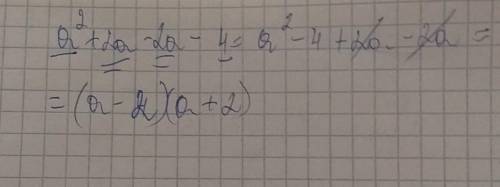 a² + 2a - 2a - 4 = a² - 4 + 2a - 2a =
= (a - 2)(a + 2)